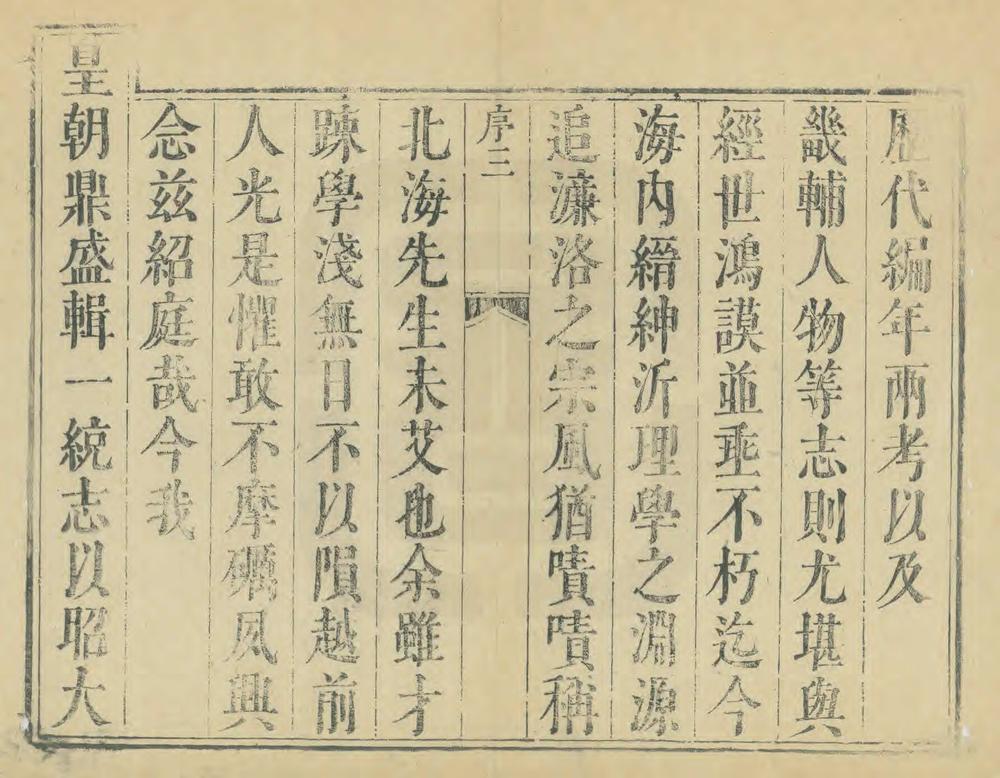 歷代編年兩考以及
畿輔人物等志則尤堪與
經世鴻謨並垂不朽迄今
海內縉紳沂理學之淵源
追濂洛之宗風猶嘖嘖稱
序三
北海先生未艾也余雖才
踈學淺無日不以隕越前
人光是懼敢不摩礪夙興
念茲紹庭哉今我
皇朝鼎盛輯一統志以昭大